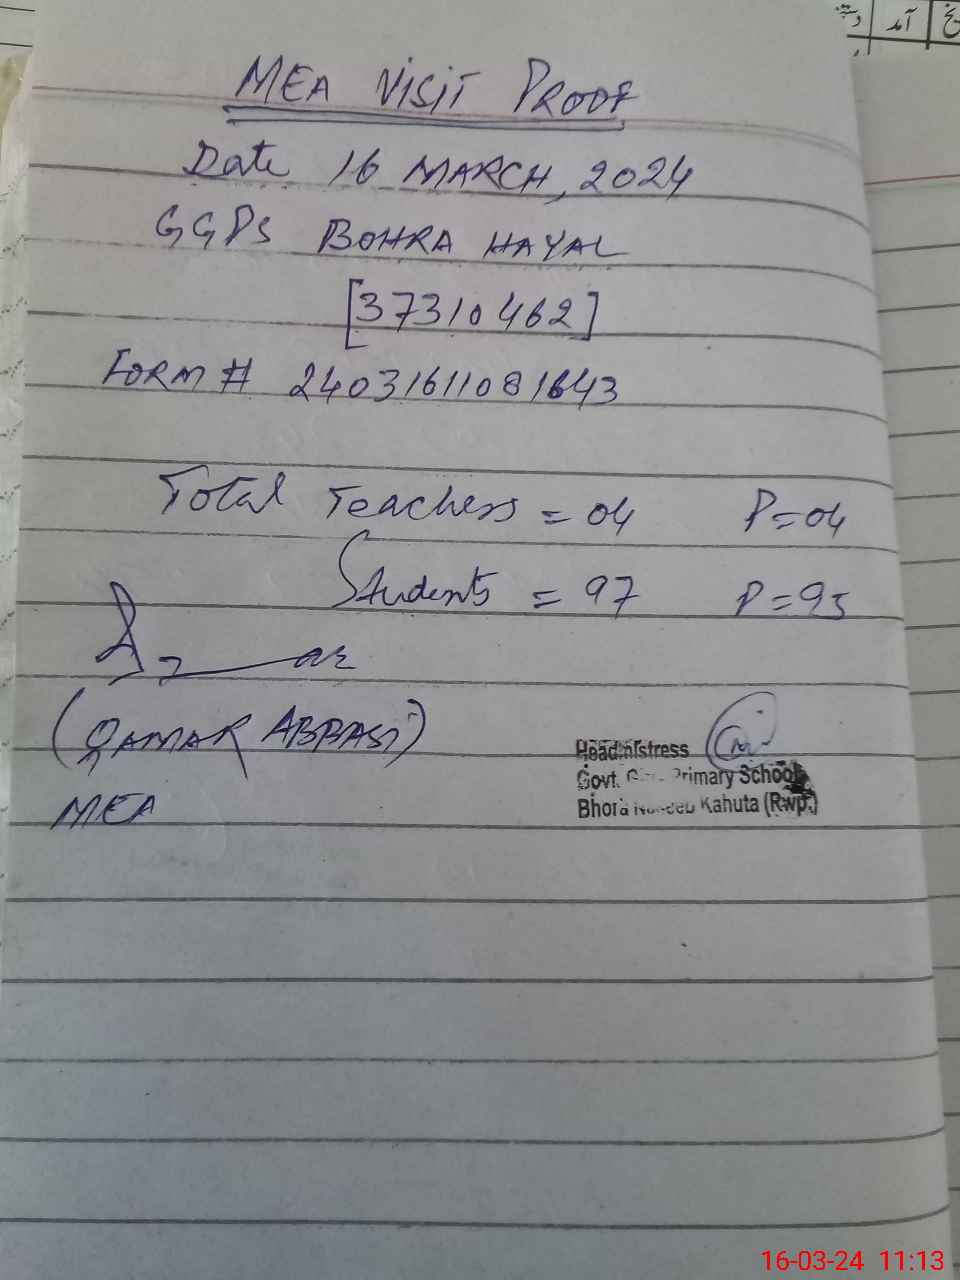 آمد
MEA VISIT PROOF
Date 16 MARCH, 2024
GGPS BOHRA HAYAL
[37310462]
FORM # 24031611081643
Total Teachers = 04 P=04
Students = 97 P=95
(QAMAR ABBASI)
MEA
Headmistress
Govt. Primary School
Bhora Kahuta (Rwp.)
16-03-24 11:13